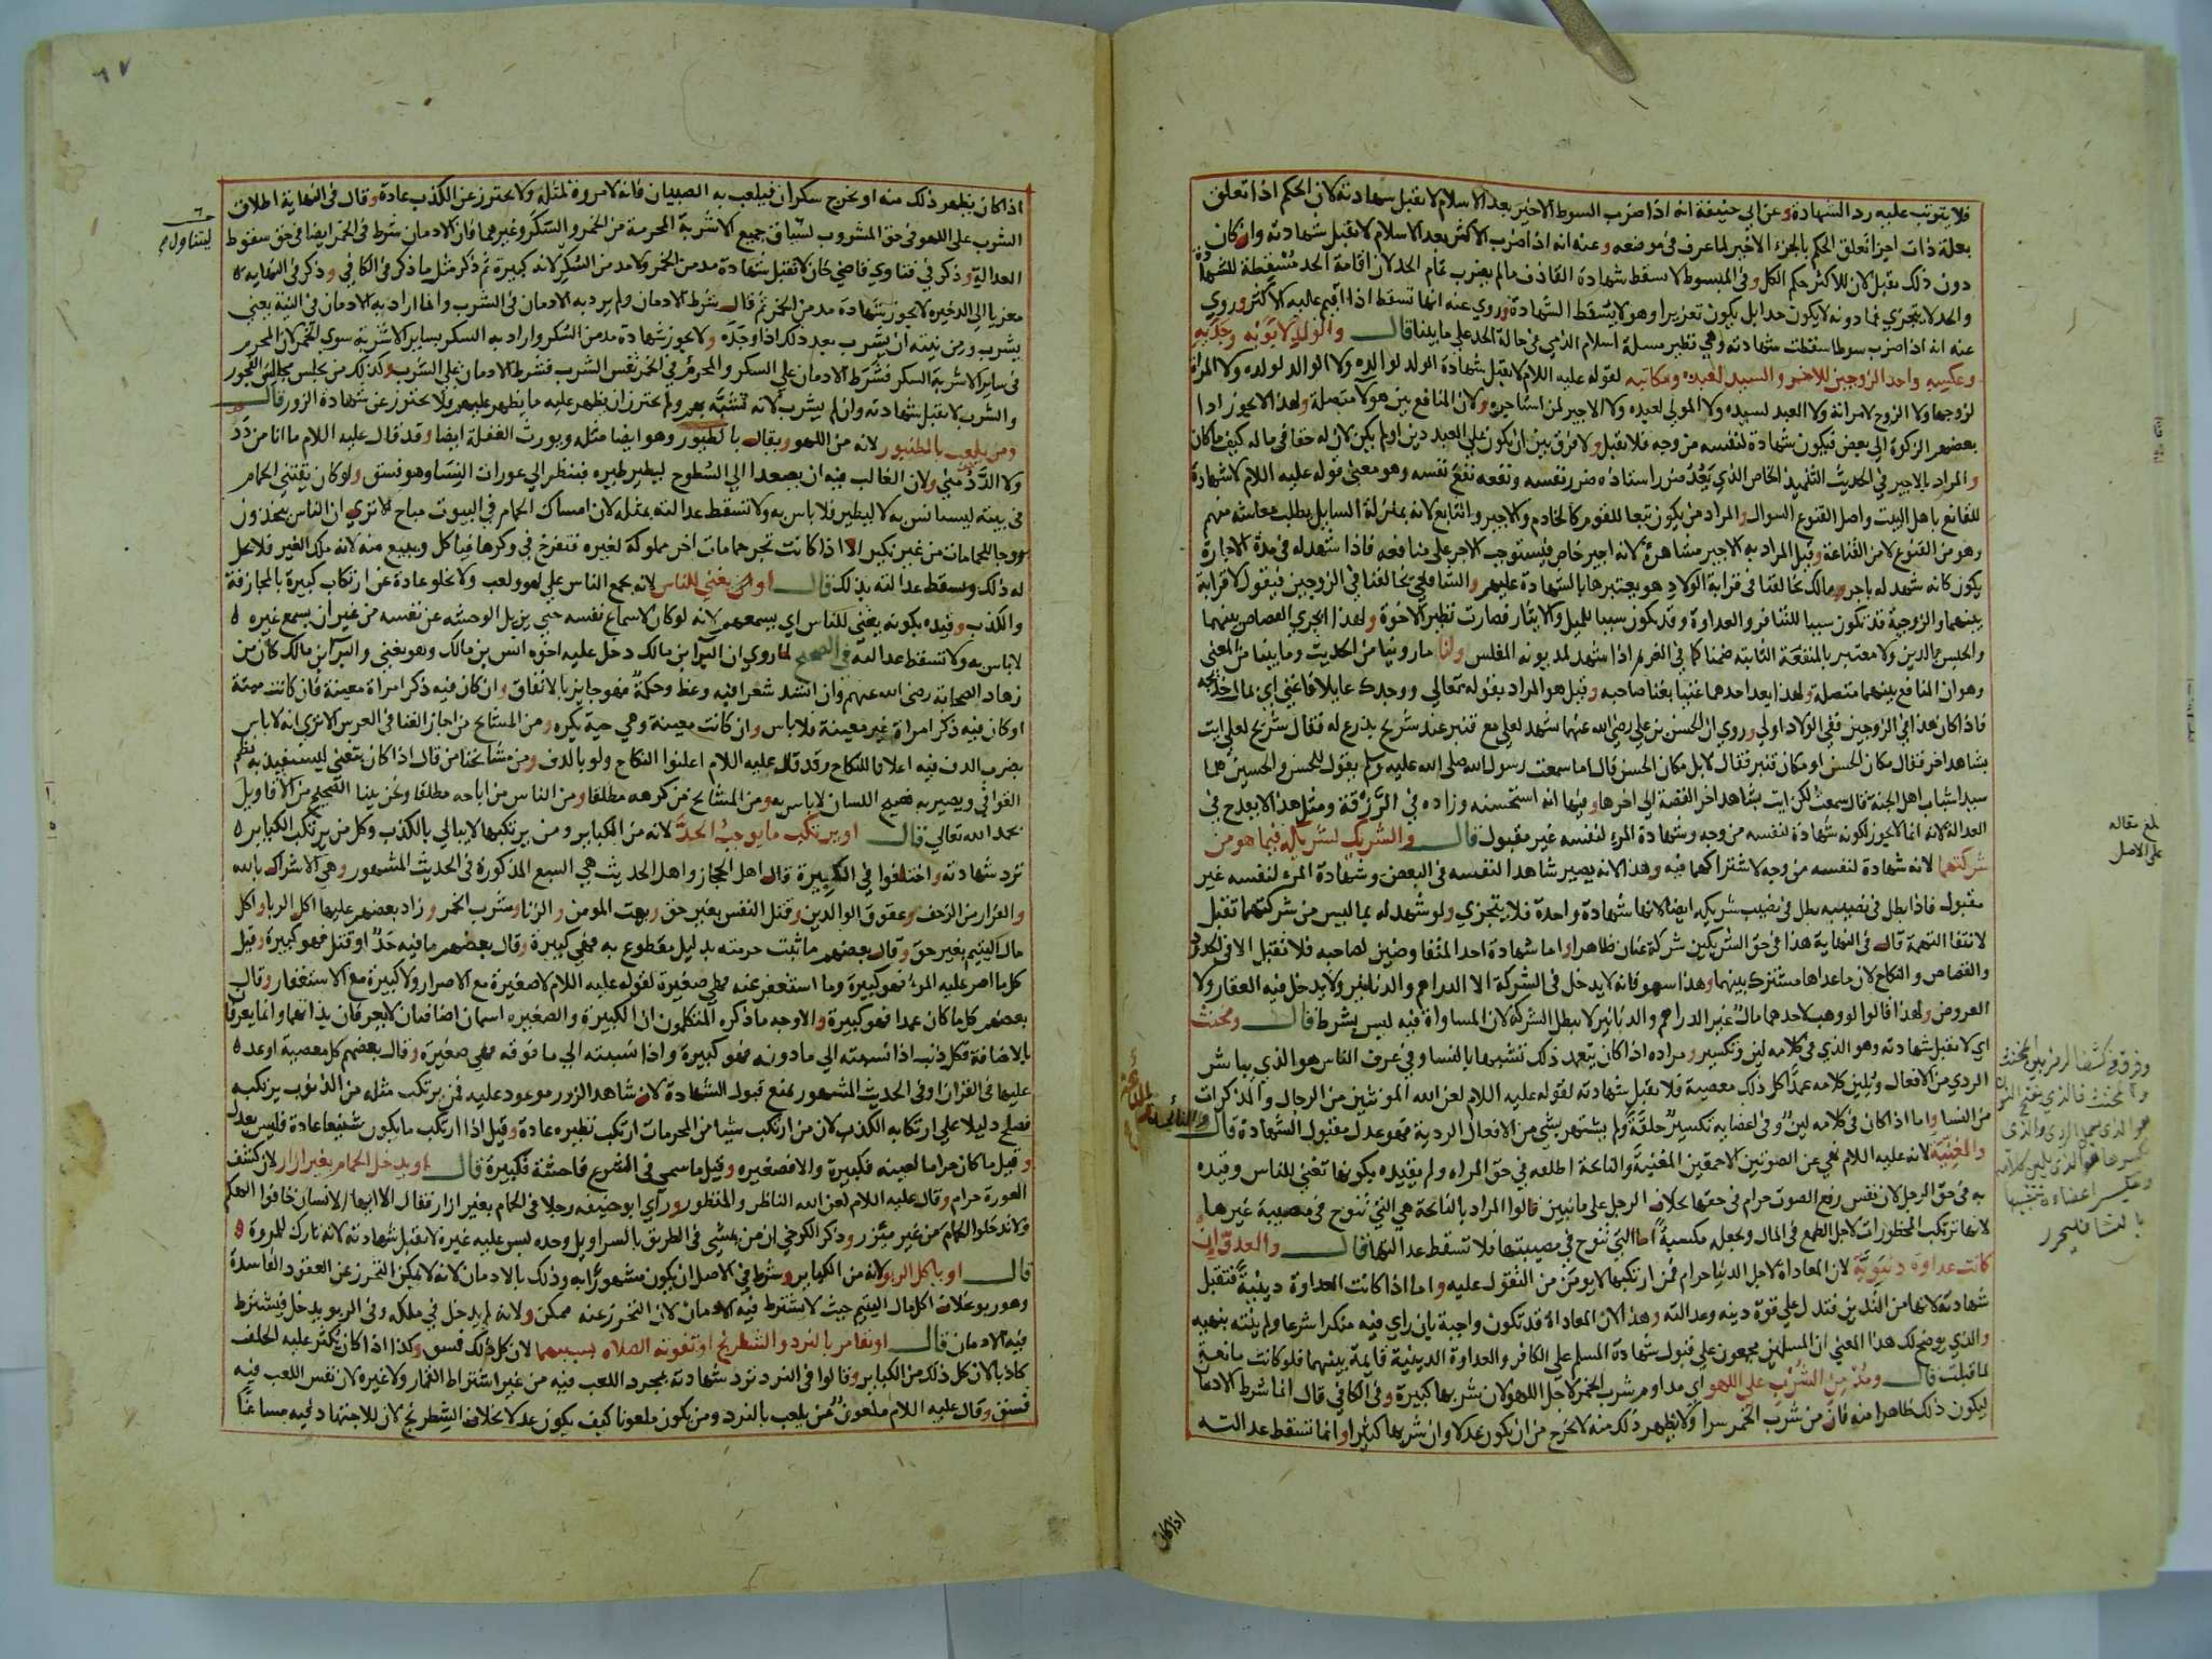 فلا يترتب عليه رد الشهادة وعن ابي حنيفة انه اذا ضرب السوط الاخير بعد الاسلام لا تقبل شهادته لان الحكم اذا تعلق
بعلة ذات اجزا تعلق الحكم بالجزء الاخير لما عرف في موضعه وعنه انه اذا ضرب الاكثر بعد الاسلام لا تقبل شهادته وان كان
دون ذلك تقبل لان للاكثر حكم الكل وفي المبسوط لا تسقط شهادة القاذف ما لم يضرب تمام الحد لان اقامة الحد مسقطة للشهادة
والحد لا يتجزي فما دونه لا يكون حدا بل يكون تعزيرا وهو لا يسقط الشهادة وروي عنه انها تسقط اذا اقيم عليه الاكثر وروي
عنه انه اذا ضرب سوطا سقطت شهادته وهي نظير مسلة اسلام الذمي في حالة الحد علي ما بينا قال والولد لابويه وجديه
وعكسه واحد الزوجين للاخر والسيد لعبده ومكاتبه لقوله عليه اللام لا تقبل شهادة الولد لوالده ولا الوالد لولده ولا المراة
لزوجها ولا الزوج لامراته ولا العبد لسيده ولا المولي لعبده ولا الاجير لمن استاجره ولان المنافع بين هولا متصلة ولهذا لا يجوز ادا
بعضهم الزكوة الي بعض فيكون شهادة لنفسه من وجه فلا تقبل ولا فرق بين ان يكون علي العبد دين او لم يكن لان له حقا في ماله كيف ما كان
والمراد بالاجير في الحديث التلميذ الخاص الذي يعد ضرر استاذه ضرر نفسه ونفعه نفع نفسه وهو معني قوله عليه اللام لا شهادة
للقانع باهل البيت واصل القنوع السوال والمراد من يكون تبعا للقوم كالخادم والاجير والتابع لانه بمنزلة السايل يطلب معاشه منهم
وهو من القنوع لا من القناعة وقيل المراد به الاجير مشاهرة لانه اجير خاص فيستوجب الاجر علي منافعه فاذا شهد له في مدة الاجارة
يكون كانه شهد له باجر ومالك يخالفنا في قرابة الولاد هو يعتبرها بالشهادة عليهم والشافعي يخالفنا في الزوجين فيقول لا قرابة
بينهما والزوجية قد تكون سببا للتنافر والعداوة وقد يكون سببا للميل والايثار فصارت نظير الاخوة ولهذا يجري القصاص بينهما
والحبس بالدين ولا معتبر بالمنفعة الثابتة ضمنا كما في الغريم اذا شهد لمديونه المفلس ولنا ما روينا من الحديث وما بينا من المعني
وهو ان المنافع بينهما متصلة ولهذا يعد احدهما غنيا بغنا صاحبه وقيل هو المراد بقوله تعالي ووجدك عايلا فاغني اي بمال خديجة
فاذا كان هذا في الزوجين ففي الولاد اولي وروي ان الحسن بن علي رضي الله عنهما شهد لعلي مع قنبر عند شريح بدرع له فقال شريح لعلي ايت
بشاهد اخر فقال مكان الحسن او مكان قنبر فقال لا بل مكان الحسن قال اما سمعت رسول الله صلي الله عليه وسلم يقول للحسن والحسين هما
سيدا شباب اهل الجنة قال سمعت لكن ايت بشاهد اخر القصة الي اخرها وفيها انه استحسنه وزاده في الرزقة ومثل هذا لا يقدح في
العدالة لانه انما لا يجوز لكونه شهادة لنفسه من وجه وشهادة المرء لنفسه غير مقبولة قال والشريك لشريكه فيما هو من
شركتهما لانه شهادة لنفسه من وجه لاشتراكهما فيه وهذا لانه يصير شاهدا لنفسه في البعض وشهادة المرء لنفسه غير
مقبولة فاذا بطل في نصيبه بطل في نصيب شريكه ايضا لانها شهادة واحدة فلا يتجزي ولو شهد له بما ليس من شركتهما تقبل
لانتفا التهمة قال في النهاية هذا في حق الشريكين شركة عنان ظاهر واما شهادة احد المتفاوضين لصاحبه فلا تقبل الا في الحدود
والقصاص والنكاح لان ما عداها مشترك بينهما وهذا سهو فانه لا يدخل في الشركة الا الدراهم والدنانير ولا يدخل فيه العقار ولا
العروض ولهذا قالوا لو وهب لاحدهما مال غير الدراهم والدنانير لا تبطل الشركة لان المساواة فيه ليس بشرط قال ومخنث
اي لا تقبل شهادته وهو الذي في كلامه لين وتكسير ومراده اذا كان يتعمد ذلك تشبها بالنسا وفي عرف الناس هو الذي يباشر
الردي من الافعال ويلين كلامه عمدا كل ذلك معصية فلا تقبل شهادته لقوله عليه اللام لعن الله المونثين من الرجال والمذكرات
من النسا واما اذا كان في كلامه لين وفي اعضايه تكسير خلقة ولم يشتهر بشي من الافعال الردية فهو عدل مقبول الشهادة قال والنائحة
والمغنية لانه عليه اللام نهي عن الصوتين الاحمقين المغنية والنايحة اطلعه في حق المراه ولم يقيده بكونها تغني للناس وقيده
به في حق الرجل لان نفس رفع الصوت حرام في حقها بخلاف الرجل علي ما نبين قالوا المراد بالنايحة هي التي تنوح في مصيبة غيرها
لانها ترتكب المحظورات لاجل الطمع في المال وتجعله مكسبة اما التي تنوح في مصيبتها فلا تسقط عدالتها قال والعدو ان
كانت عداوة دنيوية لان المعاداة لاجل الدنيا حرام فمن ارتكبها لا يومن من التقول عليه واما اذا كانت العداوة دينية فتقبل
شهادته لانها من التدين فتدل علي قوة دينه وعدالته وهذا لان المعاداة قد تكون واجبة بان راي فيه منكرا شرعا ولم ينته بنهيه
والذي يوضح لك هذا المعني ان المسلمين مجمعون علي قبول شهادة المسلم علي الكافر والعداوة الدينية قايمة بينهما فلو كانت مانعة
لما قبلت قال ومدمن الشرب علي اللهو اي مداوم شرب الخمر لاجل اللهو لان شربها كبيرة وفي الكافي قال انما شرط الادمان
ليكون ذلك ظاهرا منه فان من شرب الخمر سرا ولا يظهر ذلك منه لا يخرج من ان يكون عدلا وان شربها كثيرا وانما تسقط عدالته
اذا كان
بلغ مقاله
علي الاصل
وفرق في كشف الرمز بين المخنث
والمخنث فالذي بفتح النون
هو الذي يعمل الردي والذي
بكسرها هو الذي يلين كلامه
وتكسر اعضاءه تشبيها
بالنساء فليحرر
٦٧
اذا كان يظهر ذلك منه او يخرج سكران فيلعب به الصبيان فانه لا مروة لمثله ولا يحترز عن الكذب عادة وقال في النهاية اطلاق
الشرب علي اللهو في حق المشروب جميع الاشربة المحرمة من الخمر والسكر وغيرهما فان الادمان شرط في الخمر ايضا في حق سقوط
ليتناول
العدالة وذكر في فتاوي قاضي خان لا تقبل شهادة مدمن الخمر ولا مدمن السكر لانه كبيرة ثم ذكر مثل ما ذكر في الكافي وذكر في النهاية
معزيا الي الذخيرة لا يجوز شهادة مدمن الخمر ثم قال شرط الادمان ولم يرد به الادمان في الشرب وانما اراد به الادمان في النية يعني
يشرب ومن نيته ان يشرب بعد ذلك اذا وجده ولا يجوز شهادة مدمن السكر واراد به السكر بساير الاشربة سوي الخمر لان المحرم
في ساير الاشربة السكر فشرط الادمان علي السكر والمحرم في الخمر نفس الشرب فشرط الادمان علي الشرب وكذلك من يجلس مجالس الفجور
والشرب لا تقبل شهادته وان لم يشرب لانه تشبه بهم ولم يحترز ان يظهر عليه ما يظهر عليهم فلا يحترز عن شهادة الزور قال
ومن يلعب بالطنبور لانه من اللهو ويقال بالطيور وهو ايضا مثله ويورث الغفلة ايضا وقد قال عليه اللام ما انا من دد
ولا الدد مني ولان الغالب فيه ان يصعد الي السطوح ليطير طيره فينظر الي عورات النسا وهو فسق ولو كان يقتني الحمام
في بيته ليستانس به لا ليطير فلا باس به ولا تسقط عدالته بمثله لان امساك الحمام في البيوت مباح الا تري ان الناس يتخذون
بروجا للحمامات من غير نكير الا اذا كانت تجر حمامات اخر مملوكة لغيره فتفرخ في وكرها فياكل ويبيع منه لانه ملك الغير فلا يحل
له ذلك وتسقط عدالته بذلك قال او من يغني للناس لانه يجمع الناس علي لهو ولعب ولا يخلو عادة عن ارتكاب كبيرة بالمجازفة
والكذب وقيده بكونه يغني للناس اي يسمعهم لانه لو كان لاسماع نفسه حتي يزيل الوحشة عن نفسه من غير ان يسمع غيره
لا باس به ولا تسقط عدالته في الصحيح لما روي ان البرا بن مالك دخل عليه اخوه انس بن مالك وهو يغني والبرا بن مالك كان من
زهاد الصحابة رضي الله عنهم وان انشد شعرا فيه وعظ وحكمة فهو جايز بالاتفاق وان كان فيه ذكر امراة معينة فان كانت ميتة
او كان فيه ذكر امراة غير معينة فلا باس وان كانت معينة وهي حية يكره ومن المشايخ من اجاز الغنا في العرس الا تري انه لا باس
بضرب الدف فيه اعلانا للنكاح وقد قال عليه اللام اعلنوا النكاح ولو بالدف ومن مشايخنا من قال اذا كان يتغني ليستفيد به نظم
القوافي ويصير به فصيح اللسان لا باس به ومن المشايخ من كرهه مطلقا ومن الناس من اباحه مطلقا ونحن بينا الصحيح من الاقاويل
بحمد الله تعالي قال او يرتكب ما يوجب الحد لانه من الكباير ومن يرتكبها لا يبالي بالكذب وكل من يرتكب الكباير
ترد شهادته واختلفوا في الكبيرة قال اهل الحجاز واهل الحديث هي السبع المذكورة في الحديث المشهور وهي الاشراك بالله
والفرار من الزحف وعقوق الوالدين وقتل النفس بغير حق وبهت المومن والزنا وشرب الخمر وزاد بعضهم عليها اكل الربا واكل
مال اليتيم بغير حق وقال بعضهم ما ثبت حرمته بدليل مقطوع به فهي كبيرة وقال بعضهم ما فيه حد او قتل فهو كبيرة وقيل
كل ما اصر عليه المرء فهو كبيرة وما استغفر عنه فهي صغيرة لقوله عليه اللام لا صغيرة مع الاصرار ولا كبيرة مع الاستغفار وقال
بعضهم كل ما كان عمدا فهو كبيرة والاوجه ما ذكره المتكلمون ان الكبيرة والصغيره اسمان اضافيان لا يعرفان بذاتهما وانما يعرفان
بالاضافة فكل ذنب اذا نسبته الي ما دونه فهو كبيرة واذا نسبته الي ما فوقه فهي صغيرة وقال بعضهم كل معصية اوعد
عليها في القران وفي الحديث المشهور تمنع قبول الشهادة لان شاهد الزور موعود عليه فمن يرتكب مثله من الذنوب يرتكبه
فصلح دليلا علي ارتكابه الكذب لان من ارتكب شيا من المحرمات ارتكب نظيره عادة وقيل اذا ارتكب ما يكون شنيعا عادة فليس بعدل
وقيل ما كان حراما لعينه فكبيرة والا فصغيره وقيل ما سمي في الشرع فاحشة فكبيرة قال او يدخل الحمام بغير ازار لان كشف
العورة حرام وقال عليه اللام لعن الله الناظر والمنظور وراي ابو حنيفه رجلا في الحمام بغير ازار فقال الا ايها الانسان خافوا الهكم
ولا تدخلوا الحمام من غير ميزر وذكر الكرخي ان من يمشي في الطريق بالسراويل وحده ليس عليه غيره لا تقبل شهادته لانه تارك للمروة
قال او ياكل الربو لانه من الكباير وشرط في الاصل ان يكون مشهورا به وذلك بالادمان لانه لا يمكن التحرز عن العقود الفاسدة
وهو ربو بخلاف اكل مال اليتيم حيث لا يشترط فيه الادمان لان التحرز عنه ممكن ولانه لم يدخل في ملكه وفي الربو يدخل فيشترط
فيه الادمان قال او يقامر بالنرد والشطرنج او تفوته الصلاه بسببهما لان كل ذلك فسق وكذا اذا كان يكثر عليه الحلف
كاذبا لان كل ذلك من الكباير وقالوا في النرد ترد شهادته بمجرد اللعب فيه من غير اشتراط القمار ولا غيره لان نفس اللعب فيه
فسق وقال عليه اللام ملعون من يلعب بالنرد ومن يكون ملعونا كيف يكون عدلا بخلاف الشطرنج لان للاجتهاد فيه مساغا